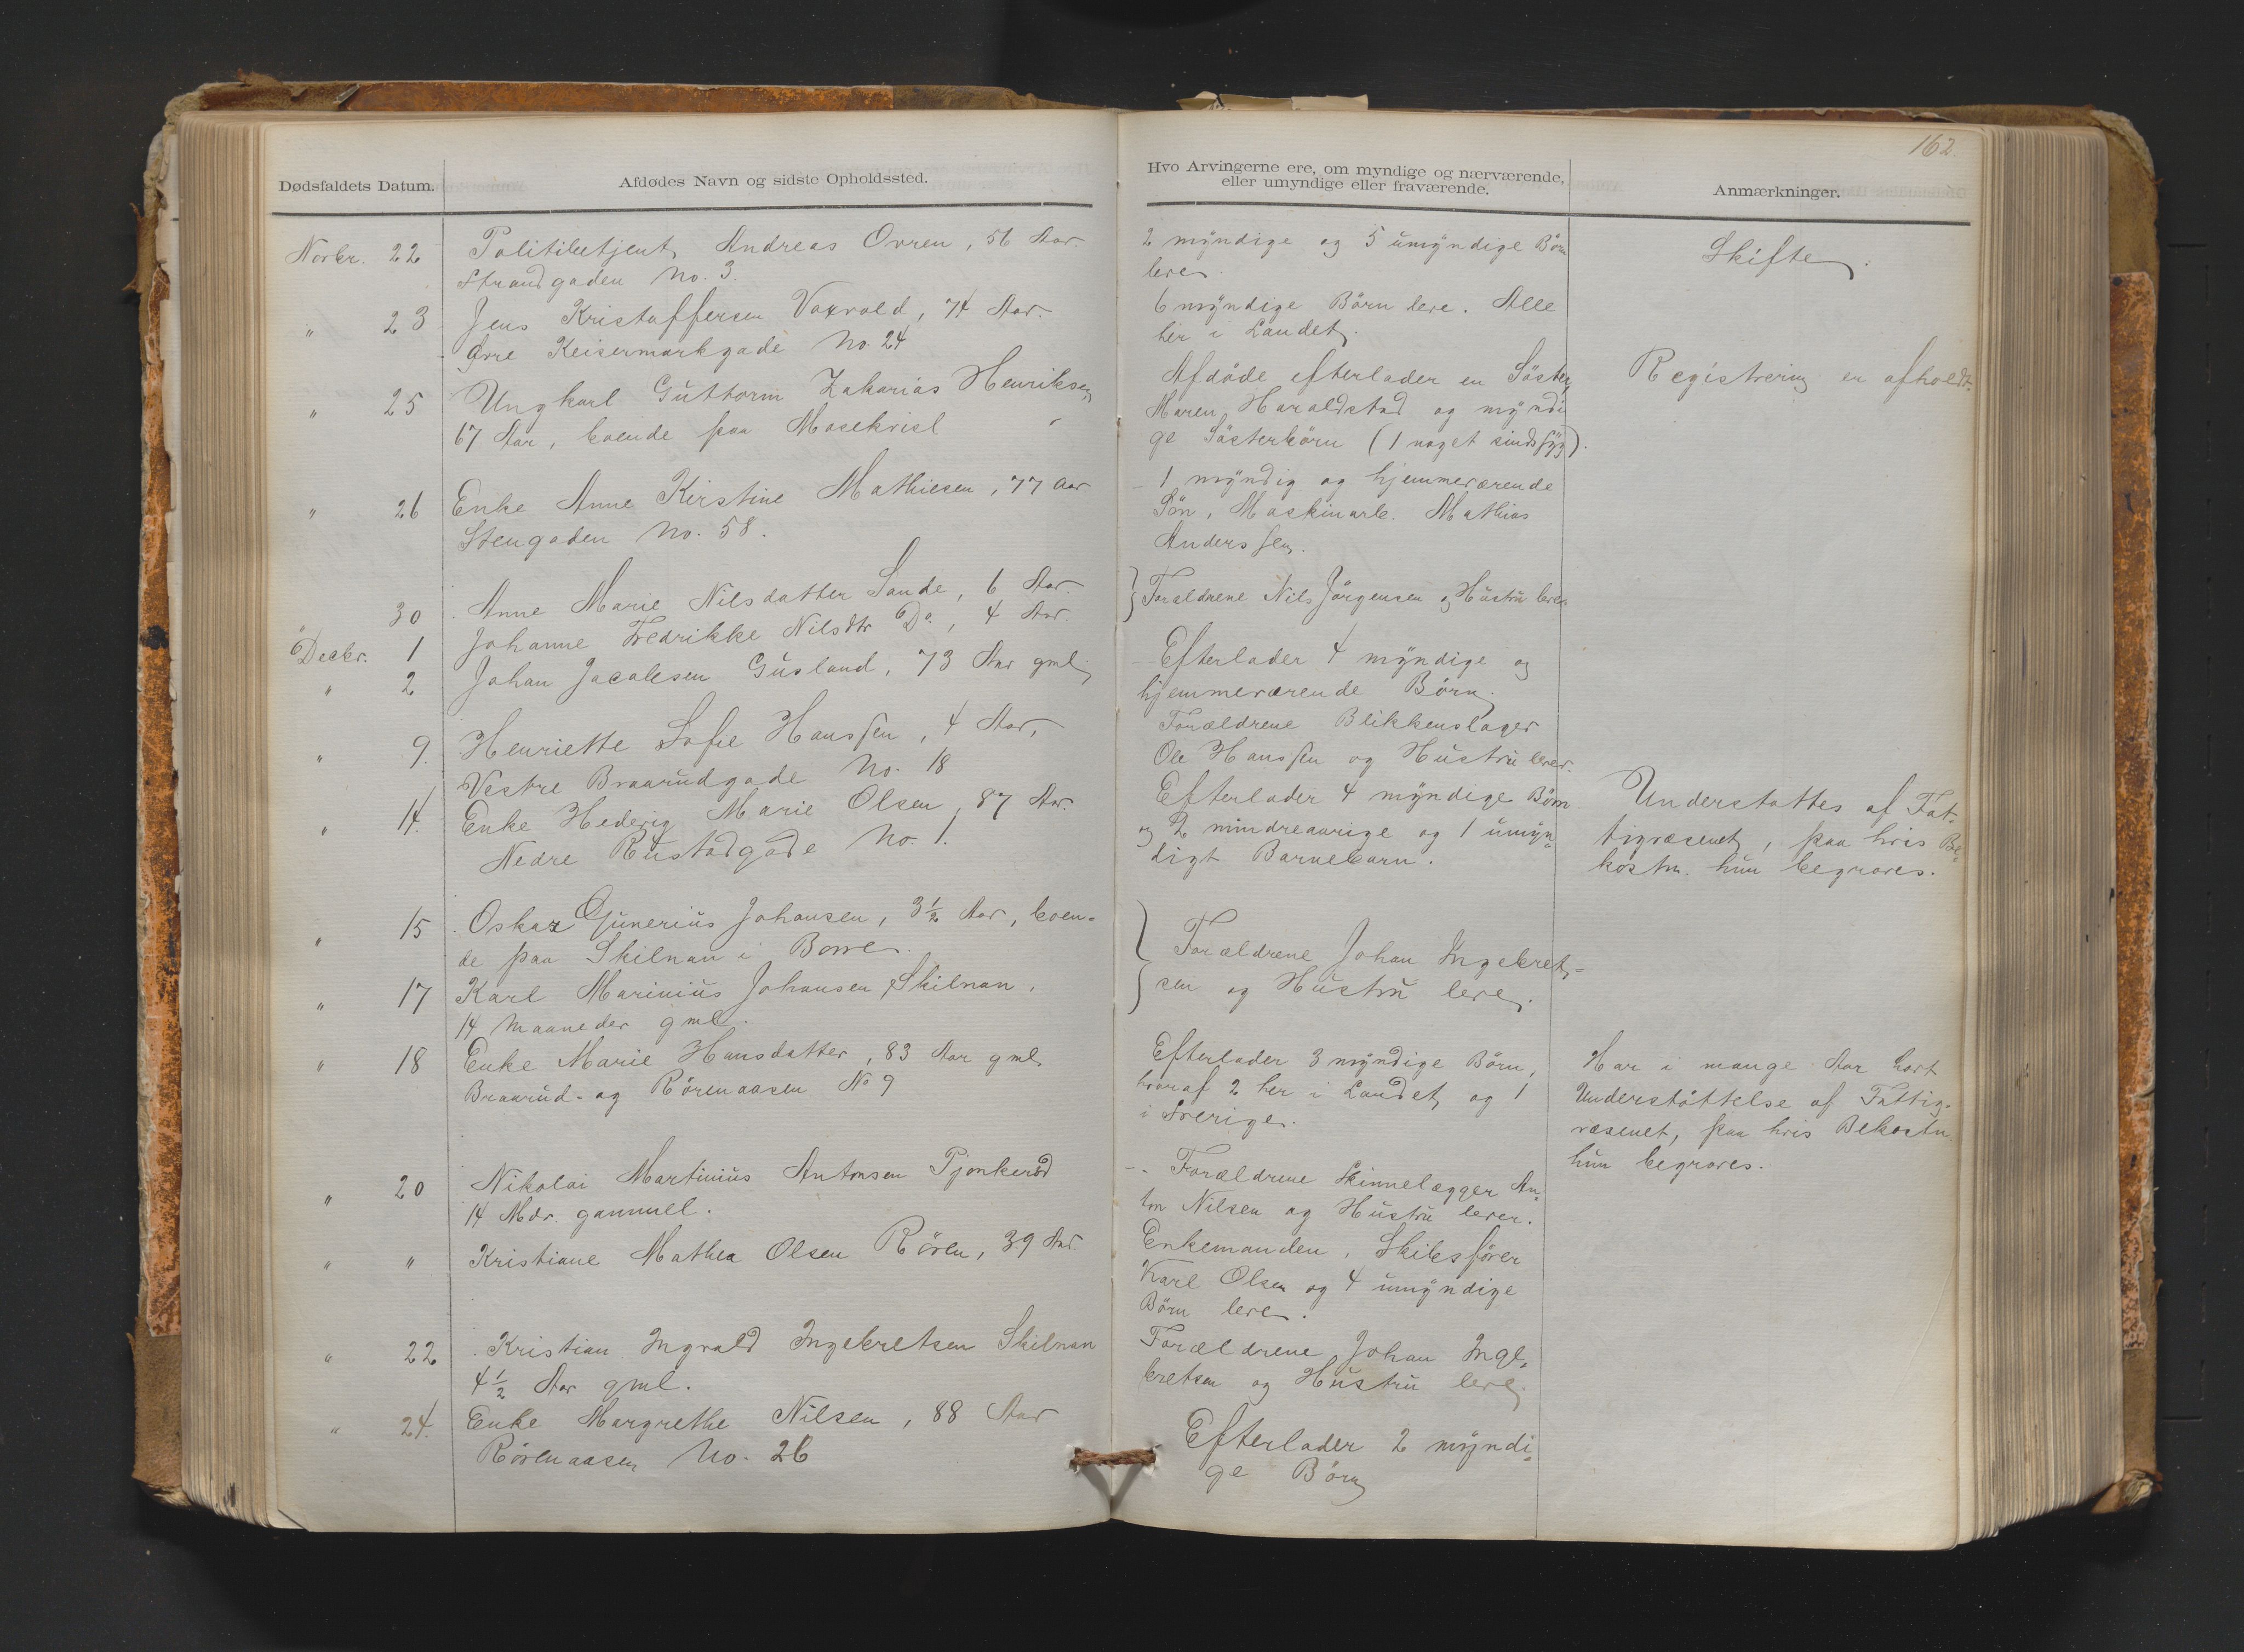 162.
Dødsfaldets Datum.
Afdødes Navn og sidste Opholdssted.
Hvo Arvingerne ere, om myndige og nærværende,
eller umyndige eller fraværende.
Anmærkninger.
Novbr. 22 Politibetjent Andreas Ovren, 56 Aar
Strandgaden No. 3.
2 myndige og 5 umyndige Börn
lever.
Skifte.
" 23 Jens Kristoffersen Voxvold, 74 Aar.
Övre Keisermarkgade No. 24
6 myndige Börn leve. Alle
her i Landet.
" 25 Ungkarl Guttorm Zakarias Henriksen,
67 Aar, boende paa Mosekvist
Afdöde efterlader en Söster,
Maren Haraldstad og myndi
ge Sösterbörn (1 noget sindssyg).
Registrering er afholdt.
" 26 Enke Anne Kirstine Mathiesen, 77 Aar
Stengaden No. 58.
1 myndig og hjemmeværende
Sön, Maskinarb. Mathias
Anderssen.
" 30 Anne Marie Nilsdatter Sande, 6 Aar.
Decbr. 1 Johanne Fredrikke Nilsdtr Do, 4 Aar.
Forældrene Nils Jörgensen og Hustru lever.
" 2 Johan Jacobsen Gusland, 73 Aar gml.
Efterlader 4 myndige og
hjemmeværende Börn.
" 9. Henriette Sofie Hanssen, 4 Aar,
Vestre Braarudgade No. 18
Forældrene Blikkenslager
Ole Hanssen og Hustru lever.
" 14. Enke Hedevig Marie Olsen, 87 Aar.
Nedre Rustadgade No. 1.
Efterlader 4 myndige Börn
og 2 mindreaarige og 1 umyn-
digt Barnebarn.
Understøttes af Fat-
tigvæsenet, paa hvis Be-
kostn. hun begraves.
" 15 Oskar Gunerius Johansen, 3½ Aar, boen-
de paa Skilnan i Borre
" 17 Karl Marinius Johansen, Skilnan,
14 Maaneder gml.
Forældrene Johan Ingebret-
sen og Hustru leve.
" 18 Enke Marie Hansdatter, 83 Aar gml.
Braarud- og Rörenaasen No 9
Efterlader 3 myndige Börn,
hvoraf 2 her i Landet og 1
i Sverige.
Har i mange Aar havt
Understöttelse af Fattig-
væsenet, paa hvis Bekostn.
hun begraves.
" 20 Nikolai Martinius Antonsen Pjonkeröd
14 Mdr. gammel.
Forældrene Skinnelægger An-
ton Nilsen og Hustru lever.
" " Kristiane Mathea Olsen Rören, 39 Aar.
Enkemanden, Skibsförer
Karl Olsen og 4 umyndige
Börn leve.
" 22 Kristian Ingvald Ingebretsen Skilnan
4½ Aar gml.
Forældrene Johan Inge-
bretsen og Hustru leve.
" 24. Enke Margrethe Nilsen, 88 Aar
Rörenaasen No. 26
Efterlader 2 myndi-
ge Börn